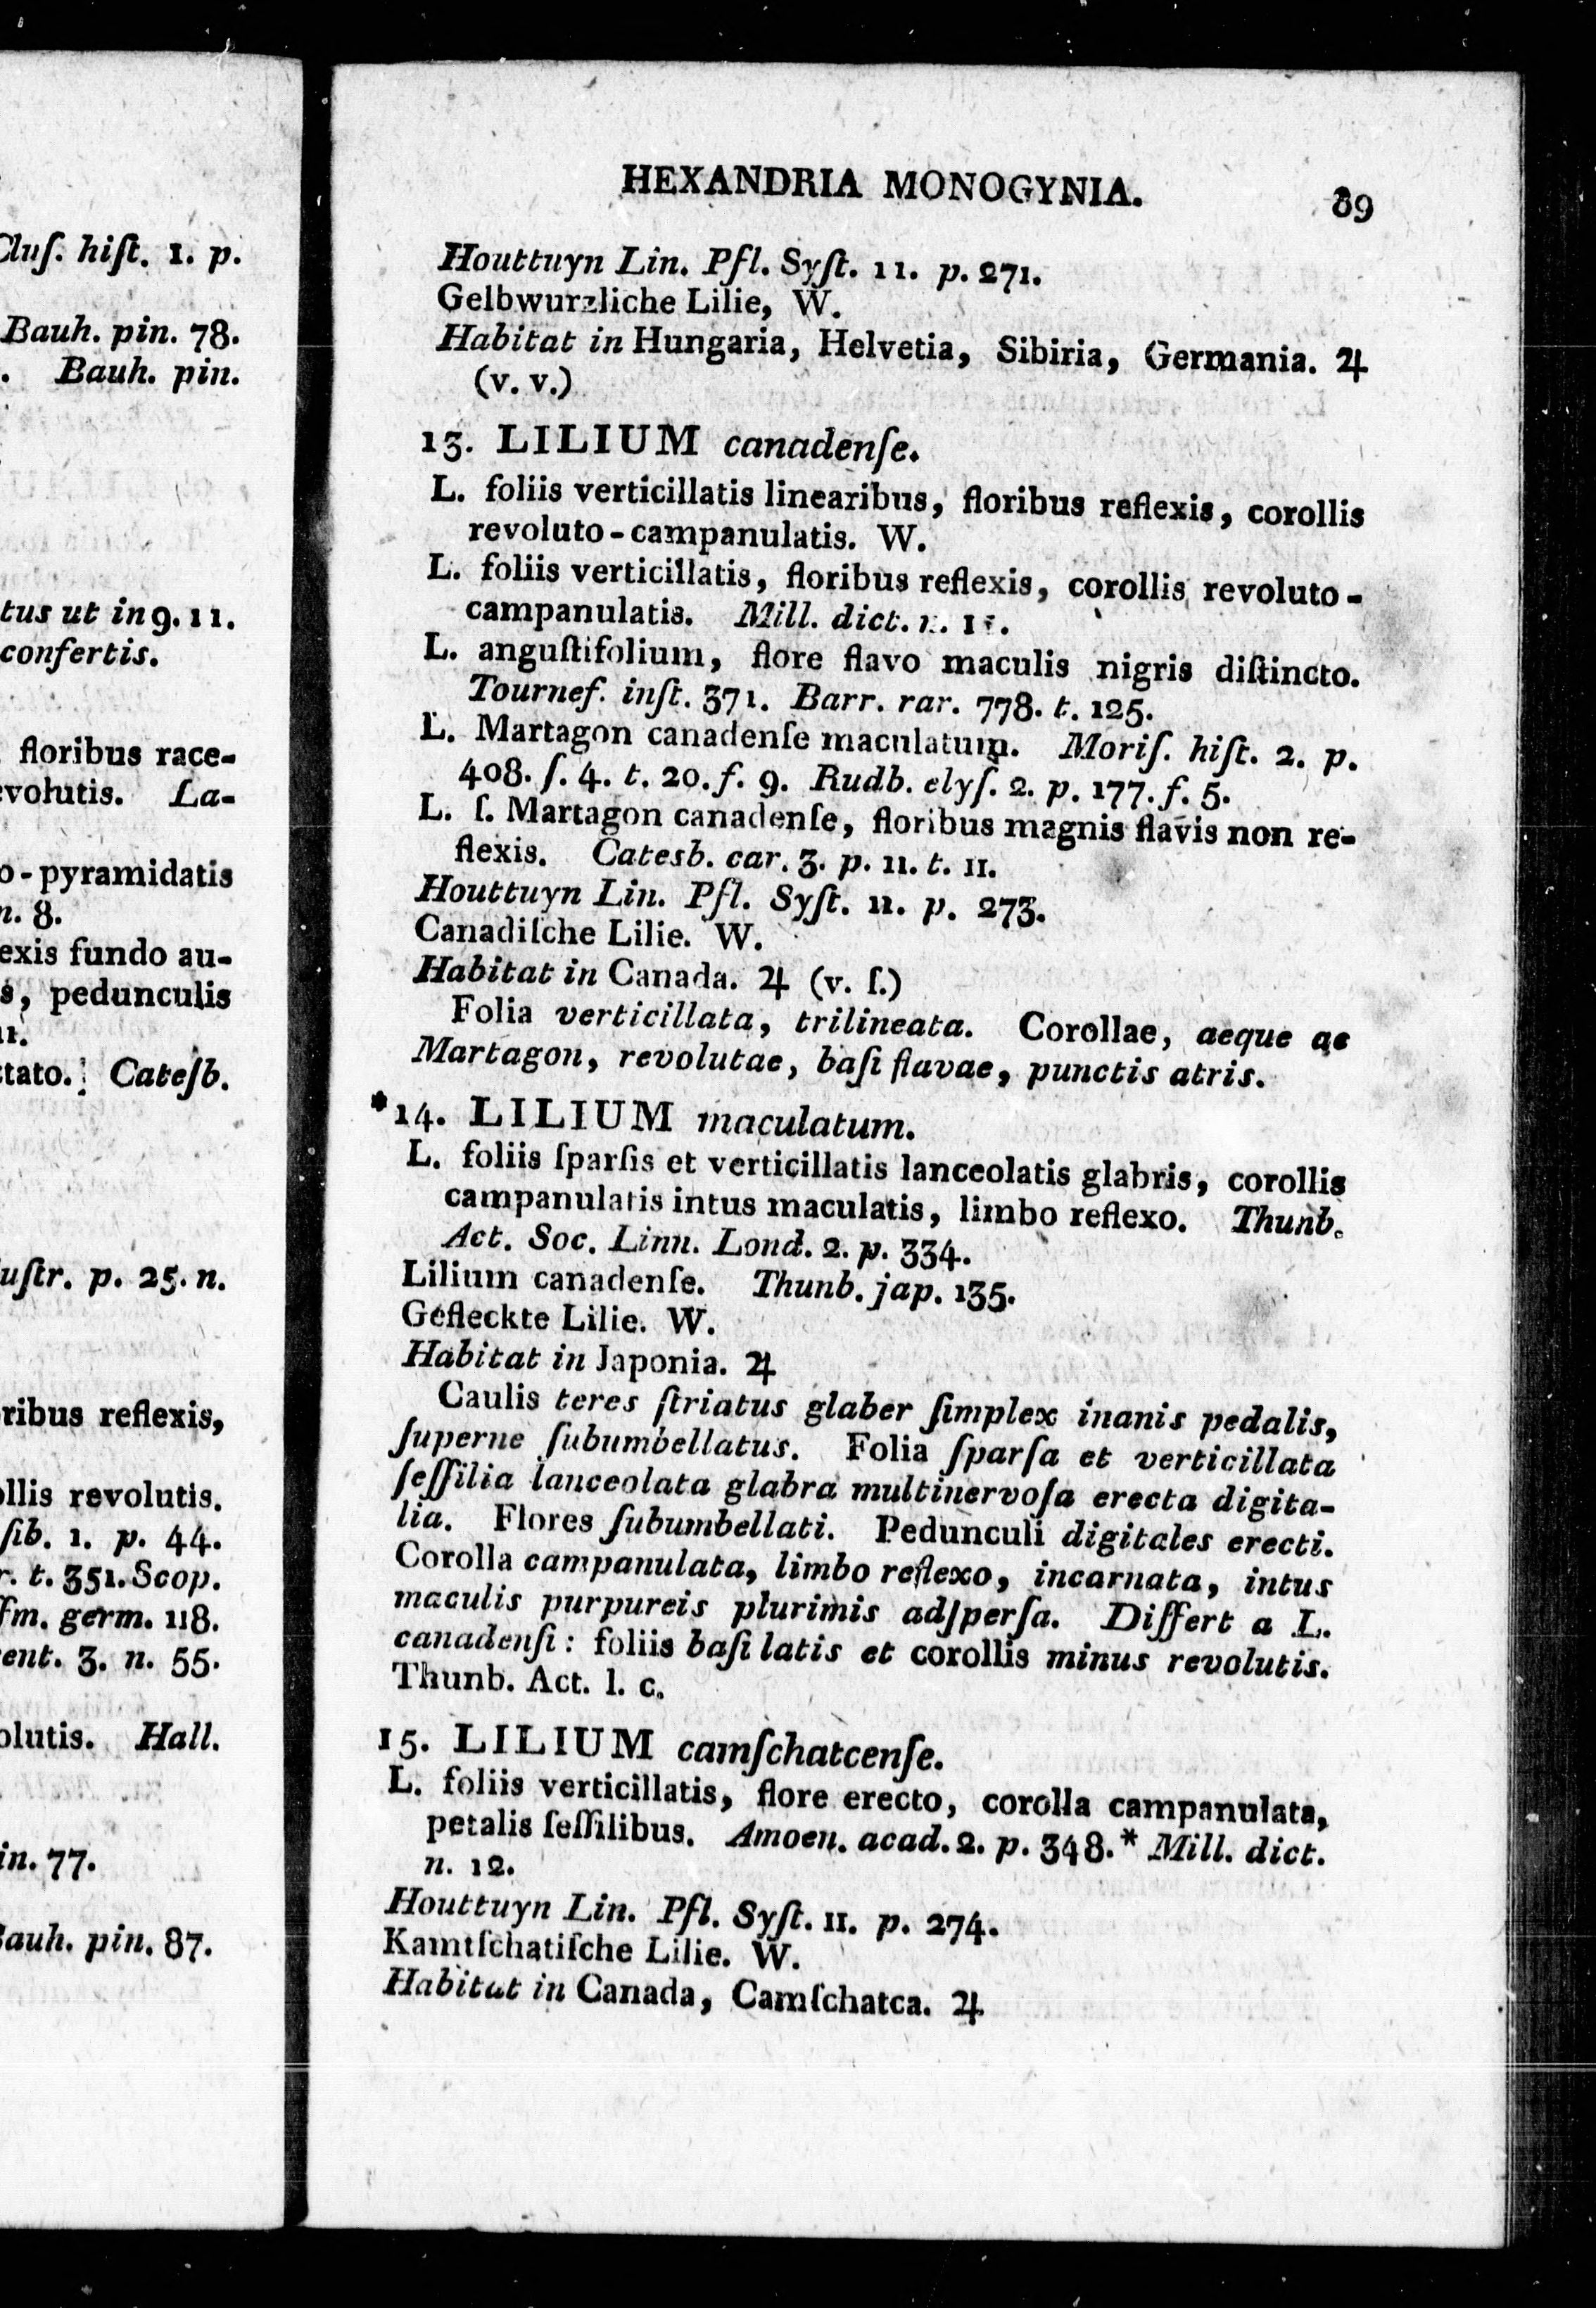 Cluſ. hiſt. 1. p.
Bauh. pin. 78.
. Bauh. pin.
tus ut in 9. 11.
confertis.
floribus race-
volutis. La-
o-pyramidatis
n. 8.
exis fundo au-
s, pedunculis
11.
tato. Cateſb.
uſtr. p. 25. n.
ribus reflexis,
ollis revolutis.
ſib. 1. p. 44.
r. t. 351. Scop.
fm. germ. 118.
ent. 3. n. 55.
olutis. Hall.
in. 77.
Bauh. pin. 87.
HEXANDRIA MONOGYNIA. 89
Houttuyn Lin. Pfl. Syſt. 11. p. 271.
Gelbwurzliche Lilie, W.
Habitat in Hungaria, Helvetia, Sibiria, Germania. ♃
(v. v.)
13. LILIUM canadenſe.
L. foliis verticillatis linearibus, floribus reflexis, corollis
revoluto-campanulatis. W.
L. foliis verticillatis, floribus reflexis, corollis revoluto-
campanulatis. Mill. dict. n.
L. anguſtifolium, flore flavo maculis nigris diſtincto.
Tournef. inſt. 371. Barr. rar. 778. t. 125.
L. Martagon canadenſe maculatum. Moriſ. hiſt. 2. p.
408. ſ. 4. t. 20. f. 9. Rudb. elyſ. 2. p. 177. f. 5.
L. ſ. Martagon canadenſe, floribus magnis flavis non re-
flexis. Catesb. car. 3. p. 11. t. 11.
Houttuyn Lin. Pfl. Syſt. 11. p. 273.
Canadiſche Lilie. W.
Habitat in Canada. ♃ (v. ſ.)
Folia verticillata, trilineata. Corollae, aeque ac
Martagon, revolutae, baſi flavae, punctis atris.
*14. LILIUM maculatum.
L. foliis ſparſis et verticillatis lanceolatis glabris, corollis
campanulatis intus maculatis, limbo reflexo. Thunb.
Act. Soc. Linn. Lond. 2. p. 334.
Lilium canadenſe. Thunb. jap. 135.
Gefleckte Lilie. W.
Habitat in Japonia. ♃
Caulis teres ſtriatus glaber ſimplex inanis pedalis,
ſuperne ſubumbellatus. Folia ſparſa et verticillata
ſeſſilia lanceolata glabra multinervoſa erecta digita-
lia. Flores ſubumbellati. Pedunculi digitales erecti.
Corolla campanulata, limbo reflexo, incarnata, intus
maculis purpureis plurimis adſperſa. Differt a L.
canadenſi: foliis baſi latis et corollis minus revolutis.
Thunb. Act. l. c.
15. LILIUM camſchatcenſe.
L. foliis verticillatis, flore erecto, corolla campanulata,
petalis ſeſſilibus. Amoen. acad. 2. p. 348.* Mill. dict.
n. 12.
Houttuyn Lin. Pfl. Syſt. 11. p. 274.
Kamtſchatiſche Lilie. W.
Habitat in Canada, Camſchatca. ♃